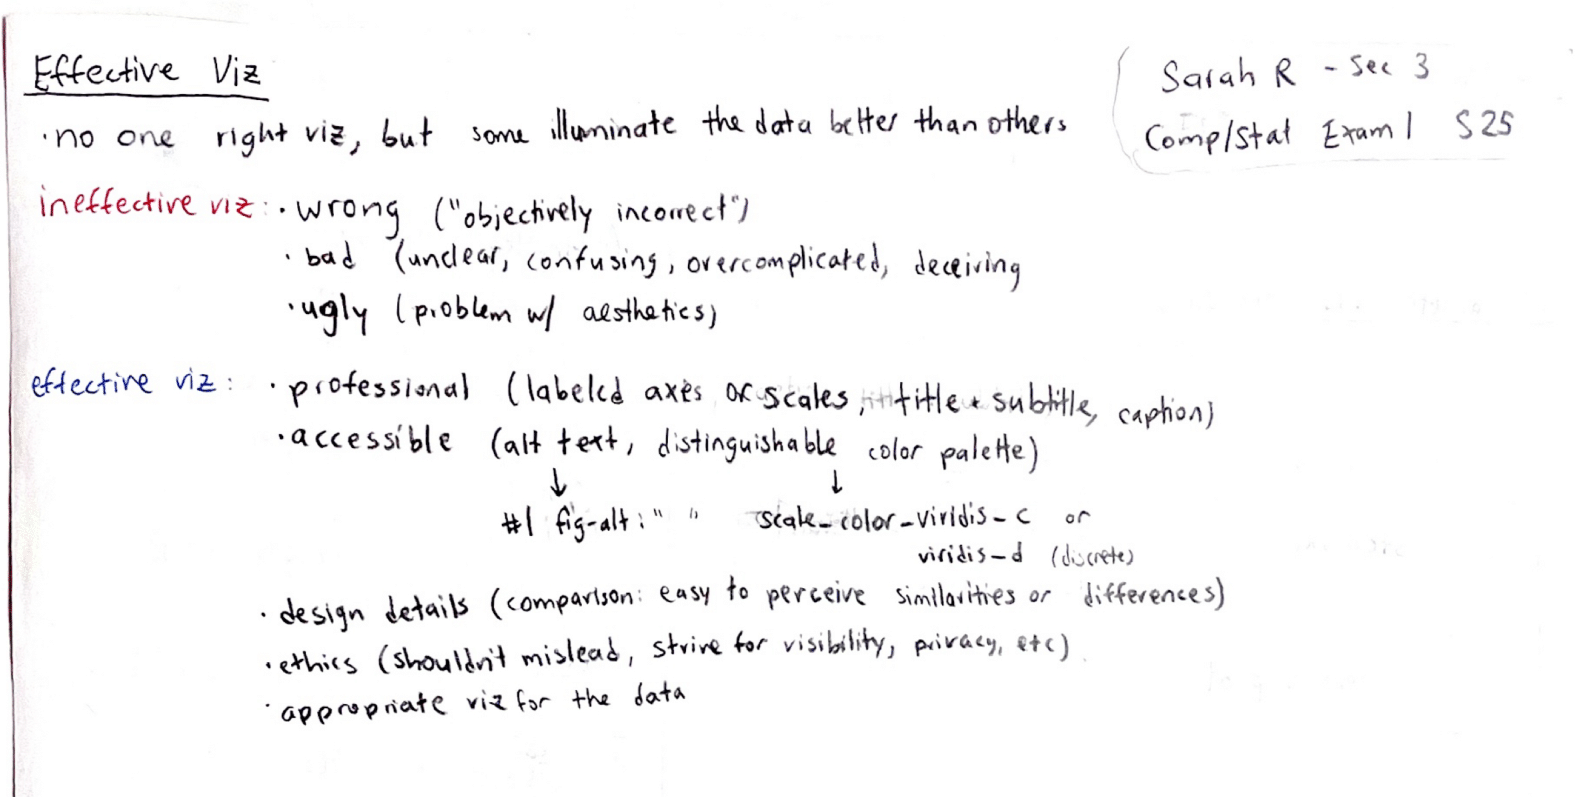 Effective Viz
Sarah R - Sec 3
Comp/Stat Exam 1 S25
·no one right viz, but some illuminate the data better than others
ineffective viz: · wrong ("objectively incorrect")
· bad (unclear, confusing, overcomplicated, deceiving
·ugly (problem w/ aesthetics)
effective viz: · professional (labeled axes or scales, title + subtitle, caption)
·accessible (alt text, distinguishable color palette)
↓ ↓
#| fig-alt: " " scale_color_viridis_c or
viridis_d (discrete)
· design details (comparison: easy to perceive similarities or differences)
·ethics (shouldn't mislead, strive for visibility, privacy, etc)
·appropriate viz for the data